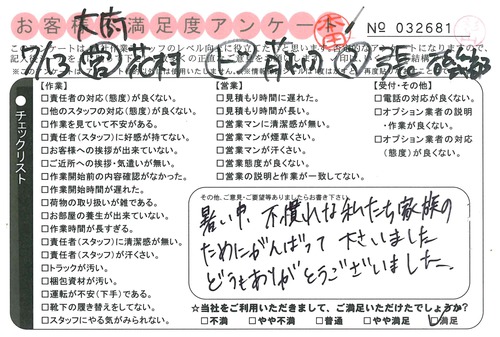 お客様満足度アンケート
本
№ 032681
大阪
7/13
【作業】
□責任者の対応(態度)が良くない。
□他のスタッフの対応(態度)が良くない。
□作業を見ていて不安がある。
□責任者(スタッフ)に好感が持てない。
□お客様への挨拶が出来ていない。
□ご近所への挨拶・気遣いが無い。
□作業開始前の内容確認がなかった。
□作業開始時間が遅れた。
□荷物の取り扱いが雑である。
□お部屋の養生が出来ていない。
□作業時間が長すぎる。
□責任者(スタッフ)に清潔感が無い。
□責任者(スタッフ)が汗くさい。
□トラックが汚い。
□梱包資材が汚い。
□運転が不安(下手)である。
□靴下の履き替えをしてない。
□スタッフにやる気がみられない。
【営業】
□見積もり時間に遅れた。
□見積もり時間が長い。
□営業マンに清潔感が無い。
□営業マンが煙草くさい。
□営業マンが汗くさい。
□営業態度が良くない。
□営業の説明と作業が一致してない。
【受付・その他】
□電話の対応が良くない。
□オプション業者の説明
・作業が良くない。
□オプション業者の対応
(態度)が良くない。
チェックリスト
その他、ご意見・ご要望等ありましたらお書き下さい。
暑い中、不慣れな私たち家族の
ためにがんばって下さいました
どうもありがとうございました。
☆当社をご利用いただきまして、ご満足いただけたでしょうか?
□不満 □やや不満 □普通 □やや満足 ☑満足